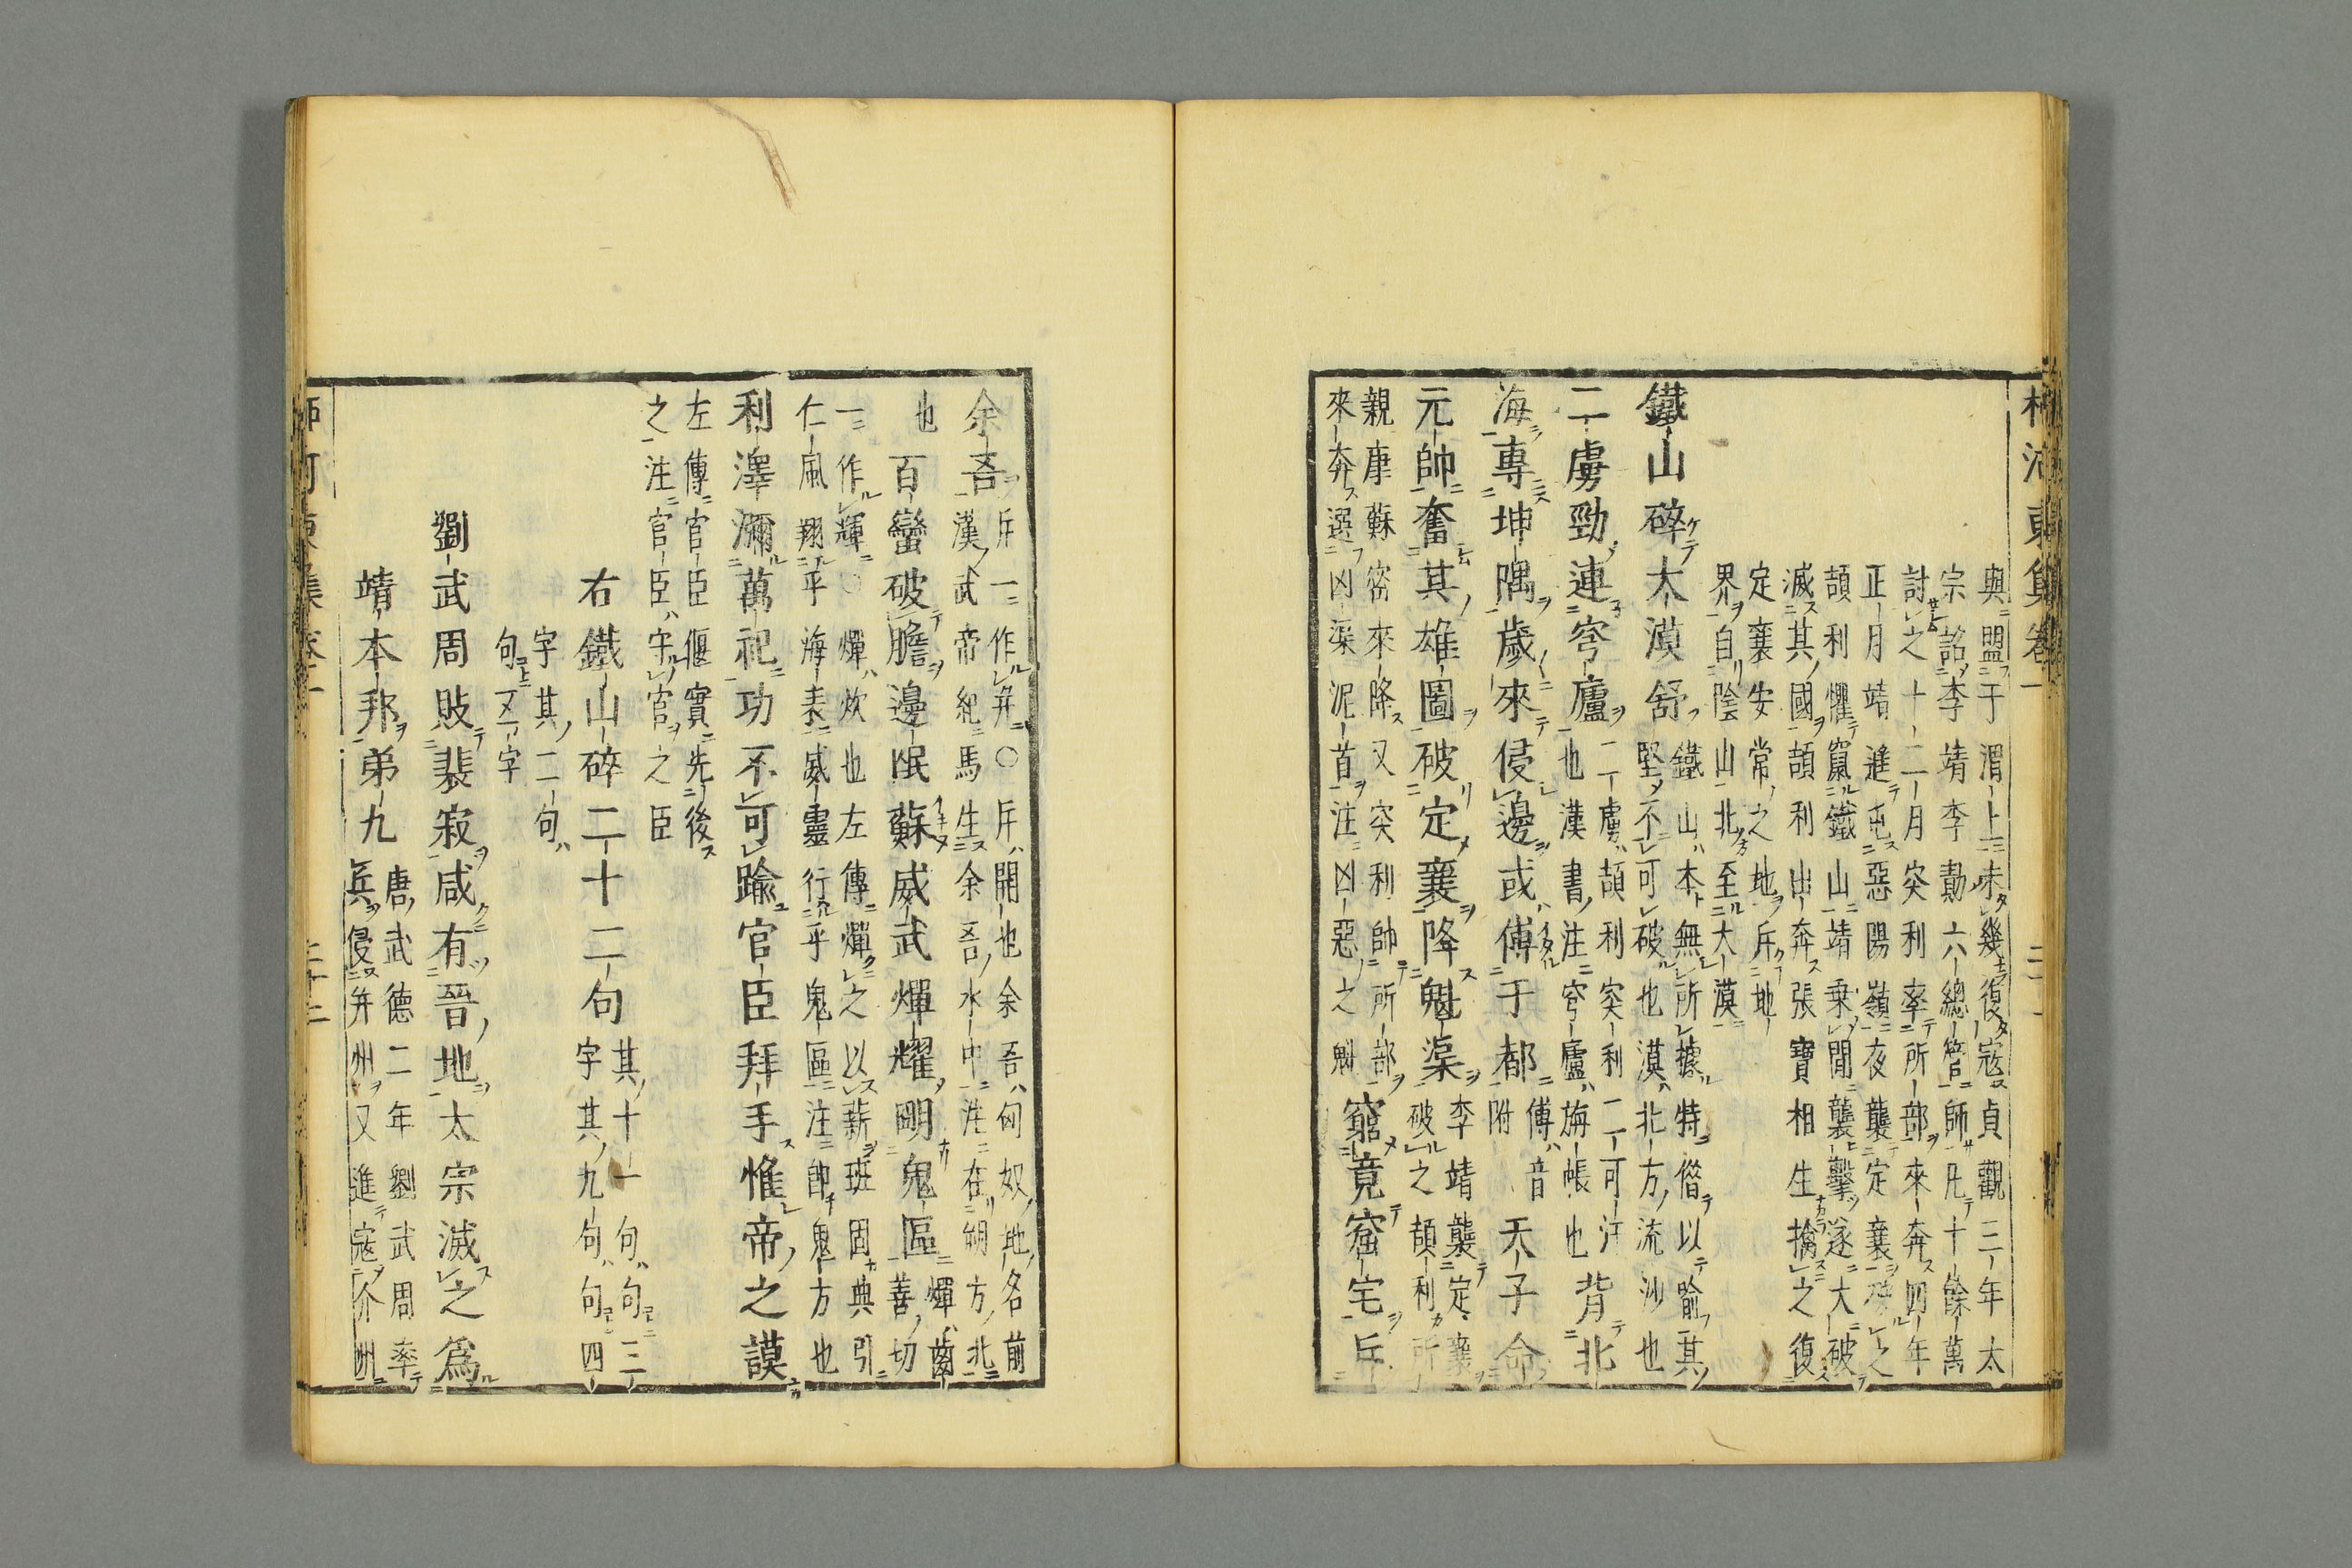 柳河東集卷一
與盟于渭上未幾復寇貞觀三年太
宗詔李靖李勣六總管師凡十餘萬
討之十二月突利率所部來奔四年
正月靖進屯惡陽嶺夜襲定襄破之
頡利懼竄鐵山靖乗間襲擊遂大破
滅其國頡利出奔張寶相生擒之復
定襄安常之地斥地
界自陰山北至大漠
鐵山碎大漠舒
鐵山本無所據特僭以喻其
堅不可破也漠北方流沙也
二虜勁連穹廬
二虜頡利突利二可汗
也漢書注穹廬旃帳也
背北
海專坤隅歲來侵邊或傅于都
傅音
附
天子命
元帥奮其雄圖破定襄降魁渠
李靖襲定襄
破之頡利所
親康蘇密來降又突利帥所部
來奔選凶渠泥首注凶惡之魁
窮竟窟宅斥
余吾
斥一作弁○斥開也余吾匈奴地名前
漢武帝紀馬生余吾水中注在朔方北
也
百蠻破膽邊氓蘇威武燀耀明鬼區
燀齒
善切
一作輝○燀炊也左傳燀之以薪班固典引
仁風翔乎海表威靈行乎鬼區注即鬼方也
利澤瀰萬祀功不可踰官臣拜手惟帝之謨
左傳官臣偃實先後
之注官臣守官之臣
右鐵山碎二十二句
其十一句句三
字其九句句四
字其二句
句五字
劉武周敗裴寂咸有晉地太宗滅之爲
靖本邦弟九
唐武德二年劉武周率
兵侵并州又進寇介州